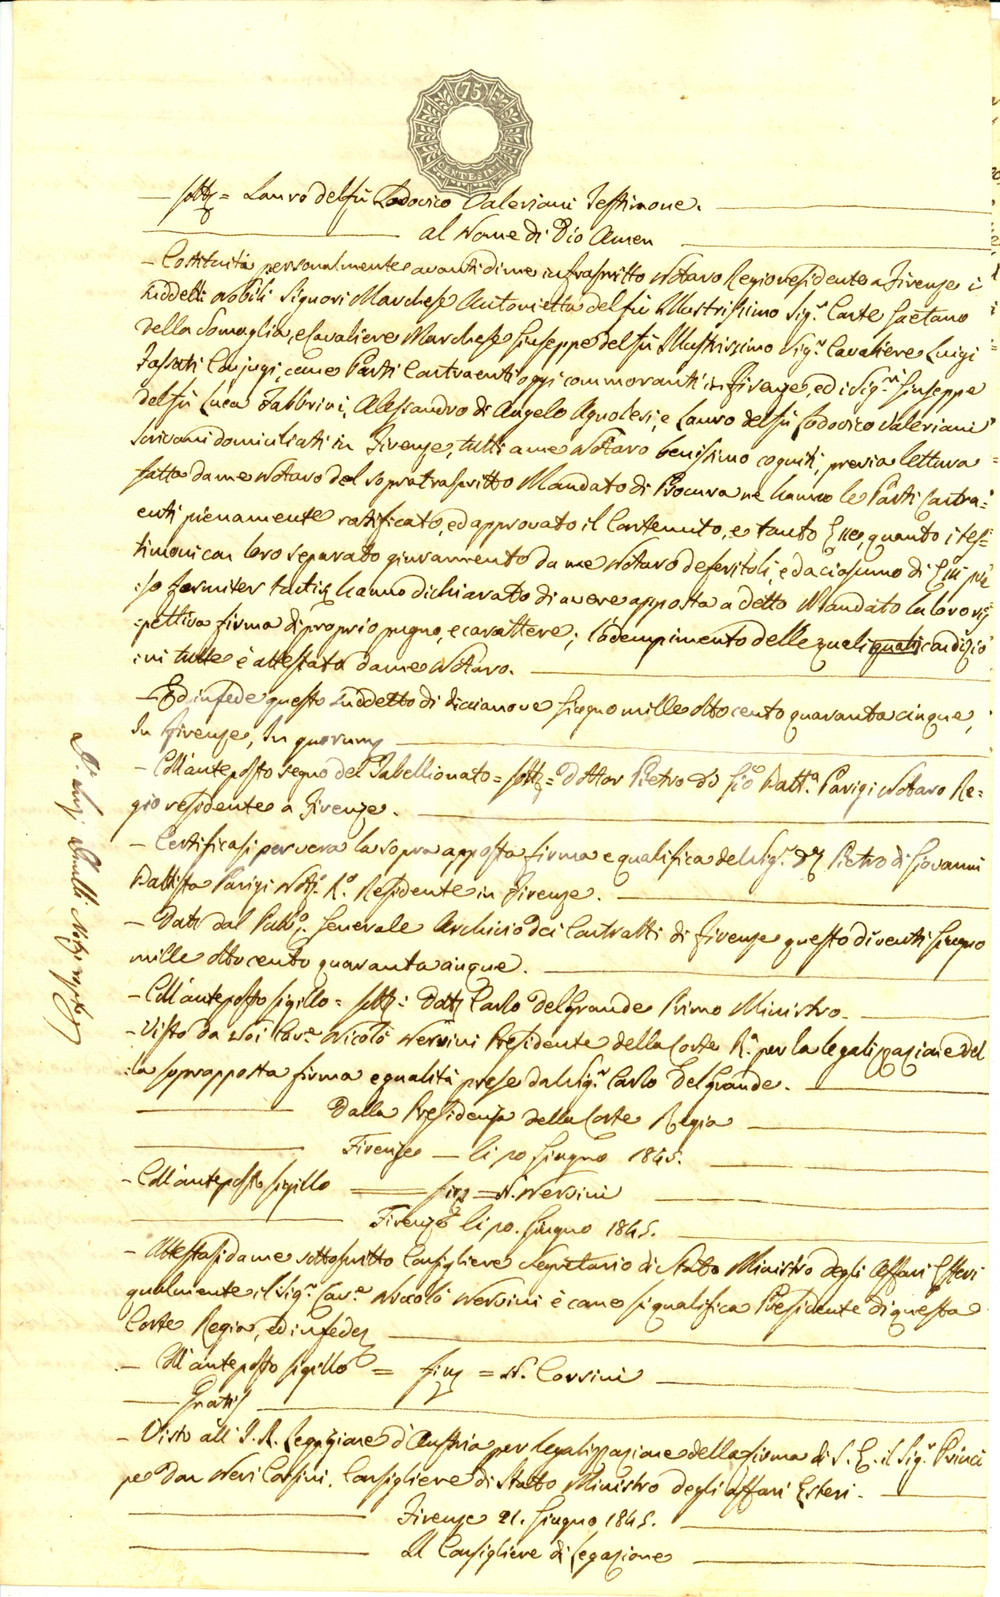 75
CENTESIMI
— sott. = Lauro del fù Lodovico Valeriani Testimone.
al Nome di Dio Amen
— Costituiti personalmente avanti di me infrascritto Notaro Regio residente a Firenze i
suddetti Nobili Signori Marchesa Antonietta del fù Illustrissimo Sig.r Conte Gaetano
della Somaglia, e Cavaliere Marchese Giuseppe del fù Illustrissimo Sig.r Cavaliere Luigi
Fassati Conjugi, come Parti Contraenti oggi commoranti in Firenze, ed i Sig.ri Giuseppe
del fù Luca Fabbrini, Alessandro di Angelo Agnolesi, e Lauro del fù Lodovico Valeriani
Scrivani domiciliati in Firenze, tutti a me Notaro benissimo cogniti, previa lettura
fatta da me Notaro del sopratrascritto Mandato di Procura ne hanno le Parti Contra=
enti pienamente ratificato, ed approvato il Contenuto, e tanto Esse, quanto i tes=
timoni con loro separato giuramento da me Notaro deferitoli, e da ciascuno di Essi pre
=so formiter tactis hanno dichiarato di avere apposta a detto Mandato la loro ris
=pettiva firma di proprio pugno, e carattere; l'adempimento delle quali quali condizio
=ni tutte è attestato da me Notaro.
— Ed in fede questo suddetto dì diciannove Giugno mille ottocento quaranta cinque,
In Firenze, In quorum
— Coll'anteposto segno del Tabellionato = sott. = Dottor Pietro di Gio Batt.a Parigi Notaro Re=
gio residente a Firenze.
— Certificasi per vera la sopra apposta firma e qualifica del Sig.r Dr Pietro di Giovanni
Battista Parigi Not.o R.o Residente in Firenze.
— Dato dal Pubb.o Generale Archivio dei Contratti di Firenze questo dì venti Giugno
mille ottocento quaranta cinque.
— Coll'anteposto sigillo = sott. = Dott. Carlo Del Grande Primo Ministro.
— Visto da Noi Cav.e Niccolò Nervini Presidente della Corte R.a per la legalizzazione del
=la soprapposta firma e qualità prese dal Sig.r Carlo Del Grande.
Dalla Presidenza della Corte Regia
Firenze — li 20 Giugno 1845.
— Coll'anteposto sigillo = fir. = N. Nervini
Firenze li 20. Giugno 1845.
— Attestasi da me sottoscritto Consigliere Segretario di Stato Ministro degli Affari Esteri
qualmente il Sig.r Cav.e Niccolò Nervini è come si qualifica Presidente di questa
Corte Regia, ed in fede
— Coll'anteposto sigillo = fir. = N. Corsini
— Gratis
— Visto all'I. R. Legazione d'Austria per legalizzazione della firma di S. E. il Sig.r Princi
pe Don Neri Corsini, Consigliere di Stato Ministro degli affari Esteri.
Firenze 21. Giugno 1845.
Il Consigliere di Legazione